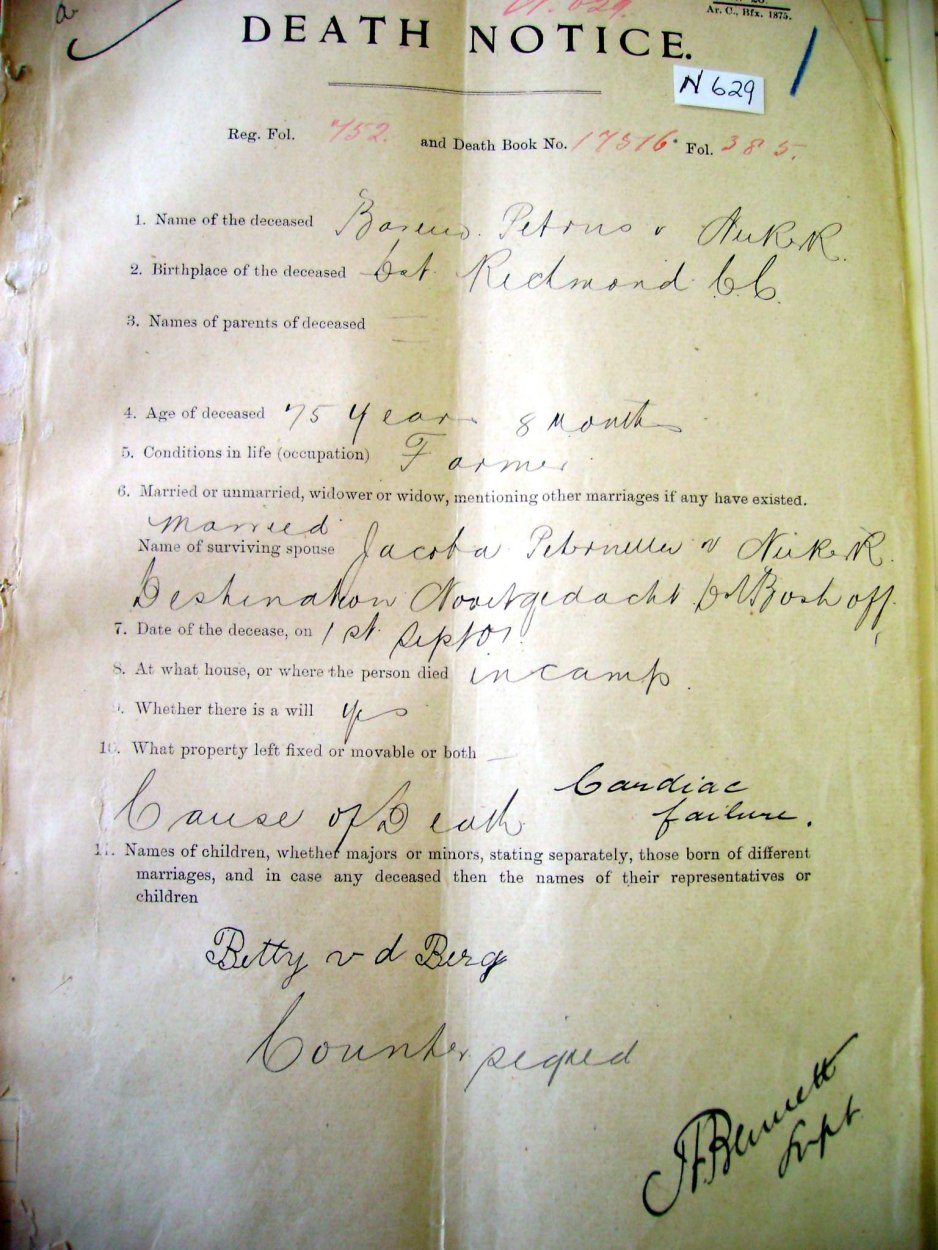 a
N. 629.
Ar. C., Bfx. 1875.
DEATH NOTICE.
N 629
Reg. Fol. 752. and Death Book No. 17516 Fol. 385.
1. Name of the deceased Petrus v Niekerk.
2. Birthplace of the deceased Dst. Richmond C.C.
3. Names of parents of deceased —
4. Age of deceased 75 years 8 Months
5. Conditions in life (occupation) Farmer
6. Married or unmarried, widower or widow, mentioning other marriages if any have existed.
Married
Name of surviving spouse Jacoba v Niekerk.
Destination Dst Boshoff.
7. Date of the decease, on 1st. Sept 01.
8. At what house, or where the person died in camp.
9. Whether there is a will yes
10. What property left fixed or movable or both —
Cause of Death Cardiac
failure.
11. Names of children, whether majors or minors, stating separately, those born of different
marriages, and in case any deceased then the names of their representatives or
children
Betty v d Berg
Counter signed
Bennett
Supt